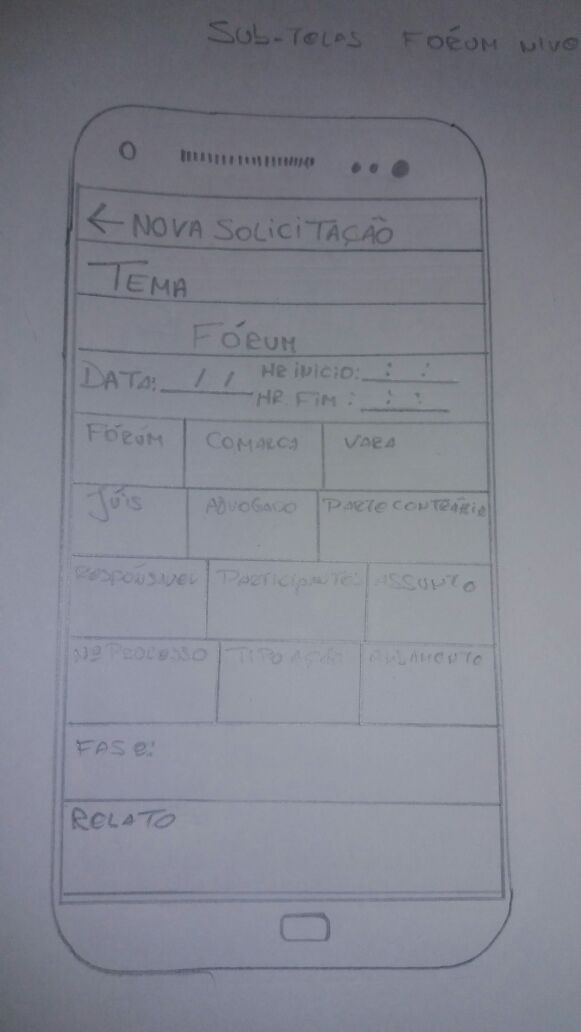 SUB-TELAS FÓRUM
← NOVA SOLICITAÇÃO
TEMA
FÓRUM
DATA: __/__/__ HR INICIO: __:__:__
HR FIM : __:__:__
FÓRUM COMARCA VARA
JÚIS ADVOGADO PARTE CONTRÁRIA
RESPONSAVEL PARTICIPANTES ASSUNTO
Nº PROCESSO TIPO AÇÃO ANDAMENTO
FASE:
RELATO